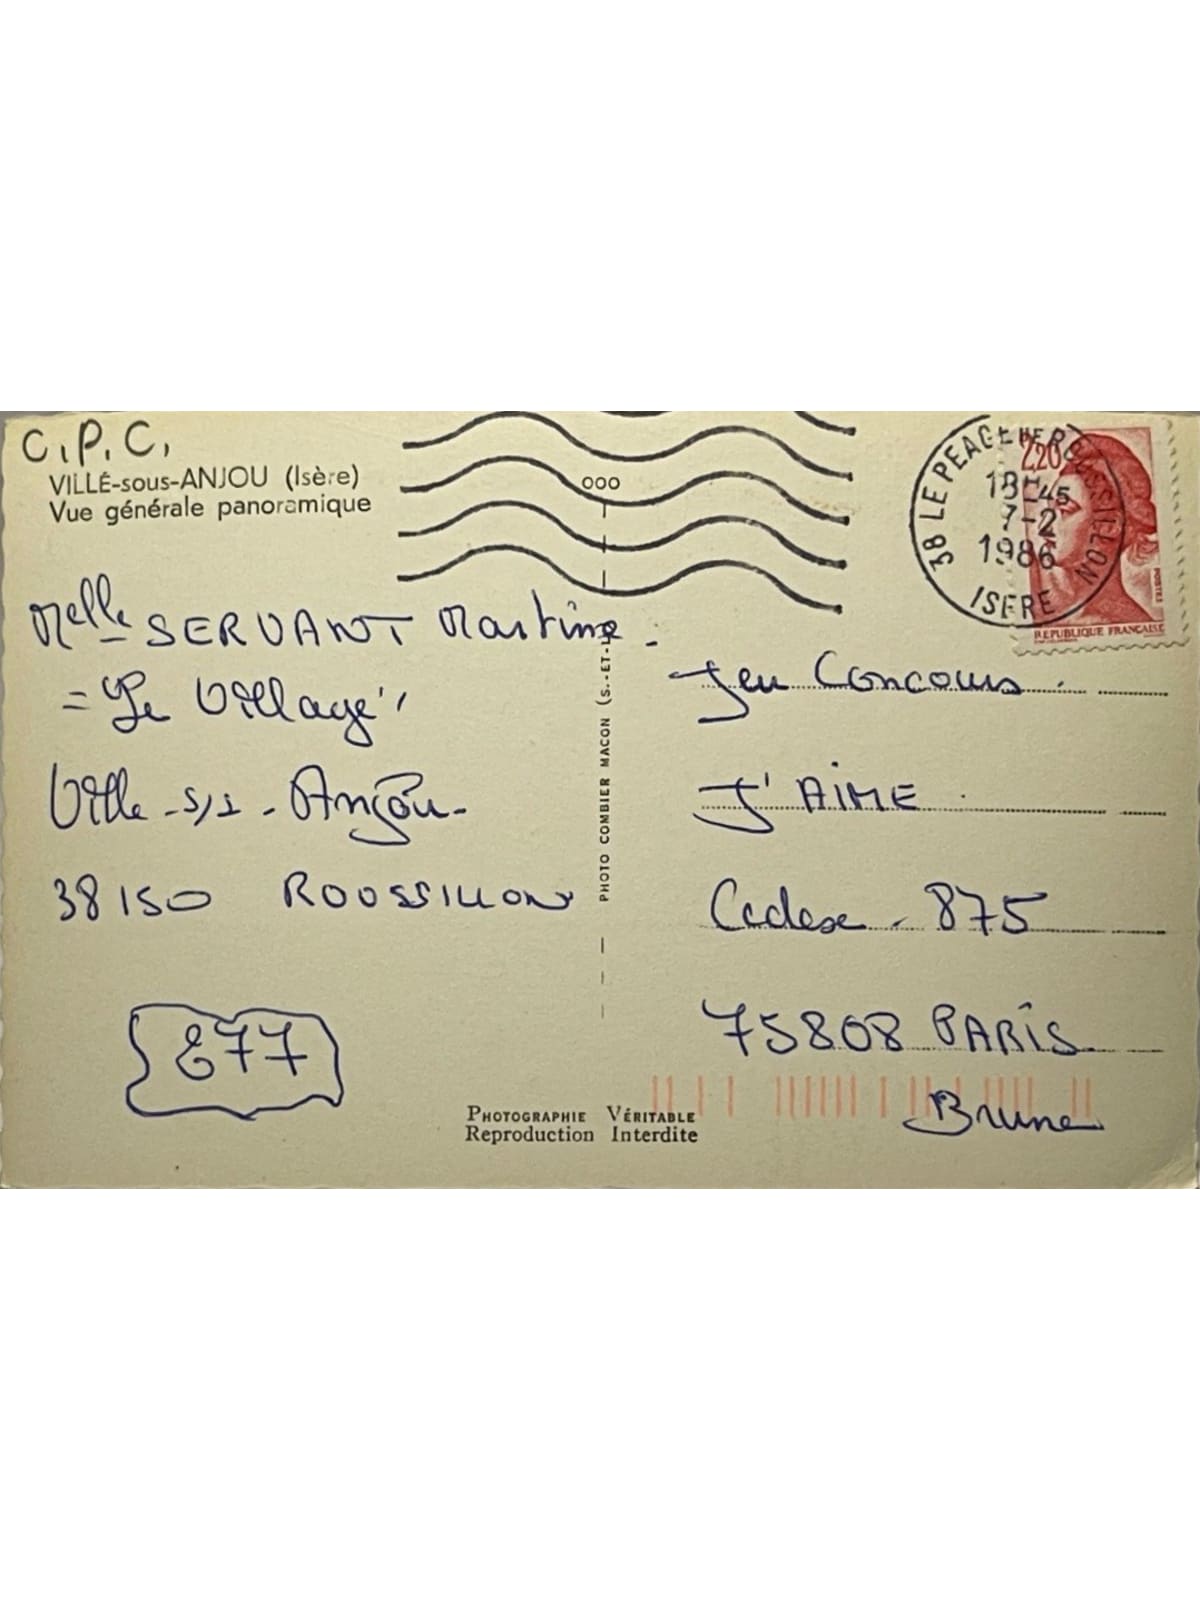 C.P.C.
VILLÉ-sous-ANJOU (Isère)
Vue générale panoramique
ooo
38 LE PEAGE DE ROUSSILLON
18H45
7-2
1986
ISERE
2,20
POSTES
REPUBLIQUE FRANÇAISE
Melle SERVANT Martine.
"Le Village"
Ville-s/s-Anjou-
38150 ROUSSILLON
E77
PHOTO COMBIER MACON (S.-ET-L
Jeu Concours.
J'AIME.
Cedex. 875
75808 PARIS
Brune
PHOTOGRAPHIE VÉRITABLE
Reproduction Interdite